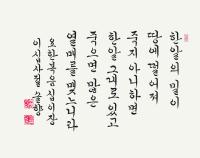 한알의 밀이
땅에 떨어져
죽지 아니하면
한알 그대로 있고
죽으면 많은
열매를 맺느니라
요한복음 십이장
이십사절 솔향